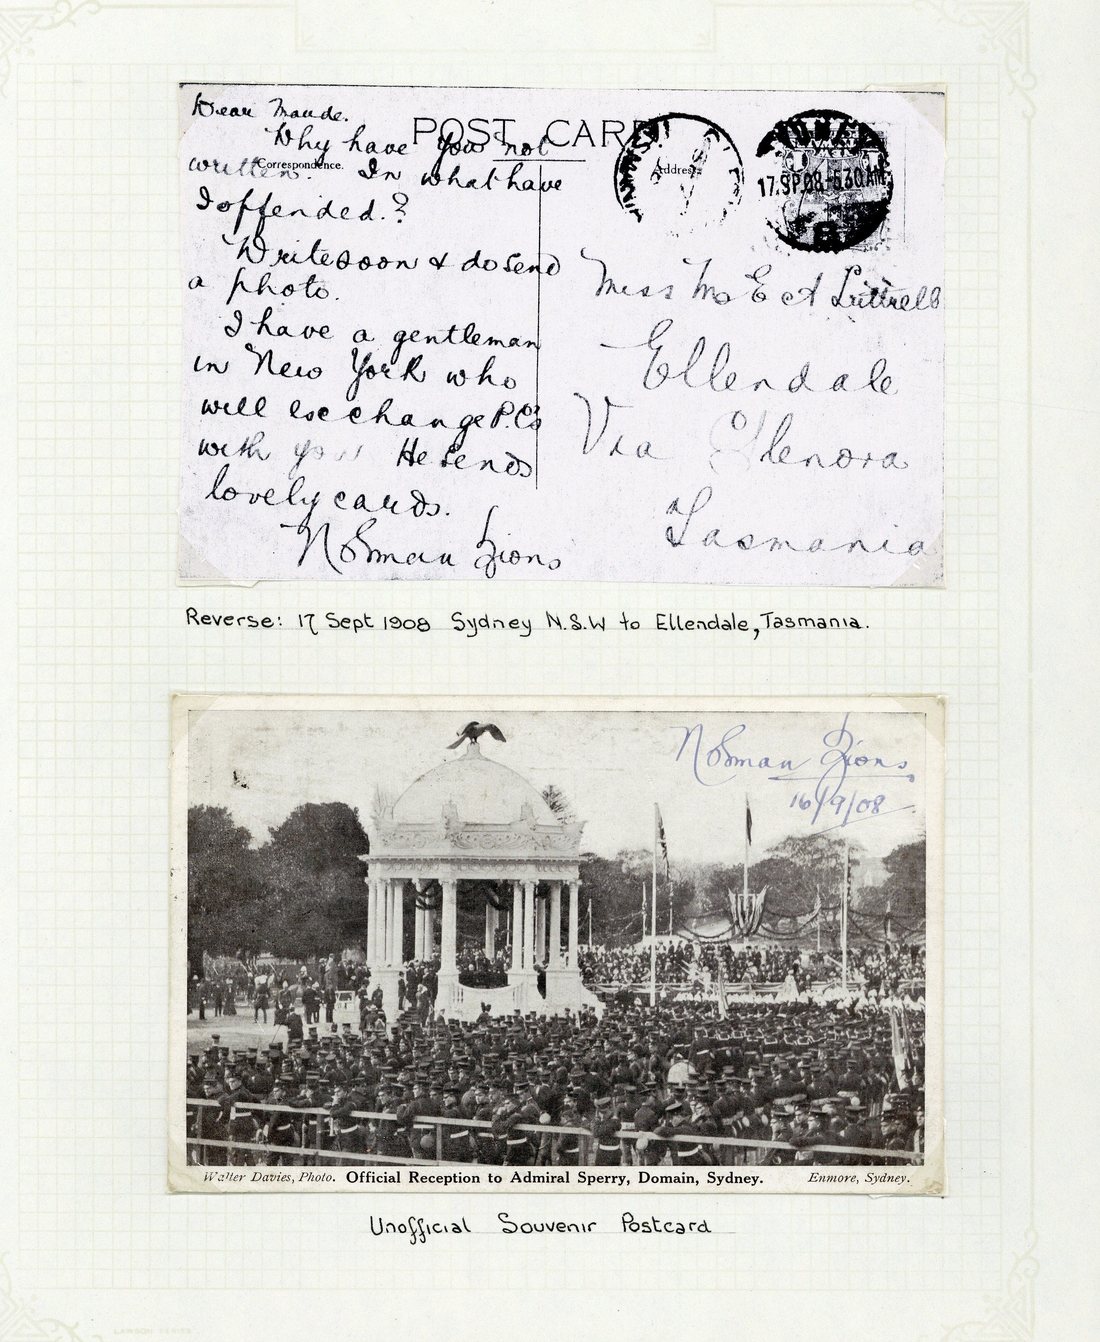 Dear Maude.
POST CARD
Why have you not
Correspondence.
Address.
written. In what have
17.SP.08-5.30AM
I offended.?
Write soon & do send
a photo.
Miss M E A Luttrell
I have a gentleman
in New York who
Ellendale
will exchange P.C's
Via Glenora
with you He sends
lovely cards.
Tasmania
Norman Zions
Reverse: 17 Sept 1908 Sydney N.S.W to Ellendale, Tasmania.
Norman Zions
16/9/08
Walter Davies, Photo. Official Reception to Admiral Sperry, Domain, Sydney. Enmore, Sydney.
Unofficial Souvenir Postcard
LAWSON SERIES